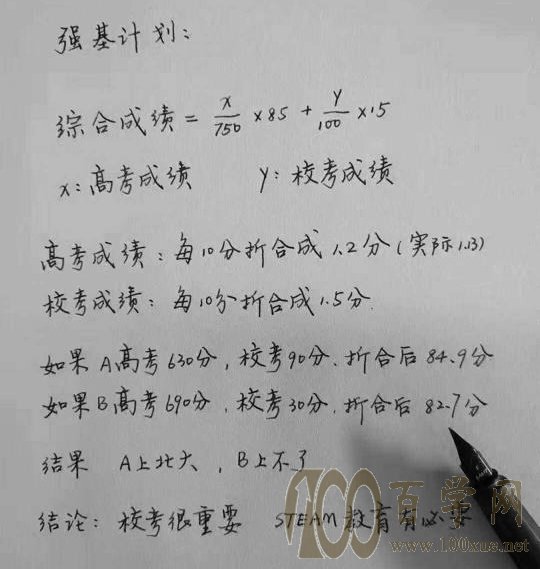 强基计划：
综合成绩 = x/750 ×85 + y/100 ×15
x：高考成绩 y：校考成绩
高考成绩：每10分折合成1.2分（实际1.13）
校考成绩：每10分折合成1.5分.
如果A高考630分，校考90分.折合后84.9分
如果B高考690分，校考30分.折合后82.7分
结果 A上北大，B上不了
结论：校考很重要 STEAM教育有必要
100百学网
www.100xue.net